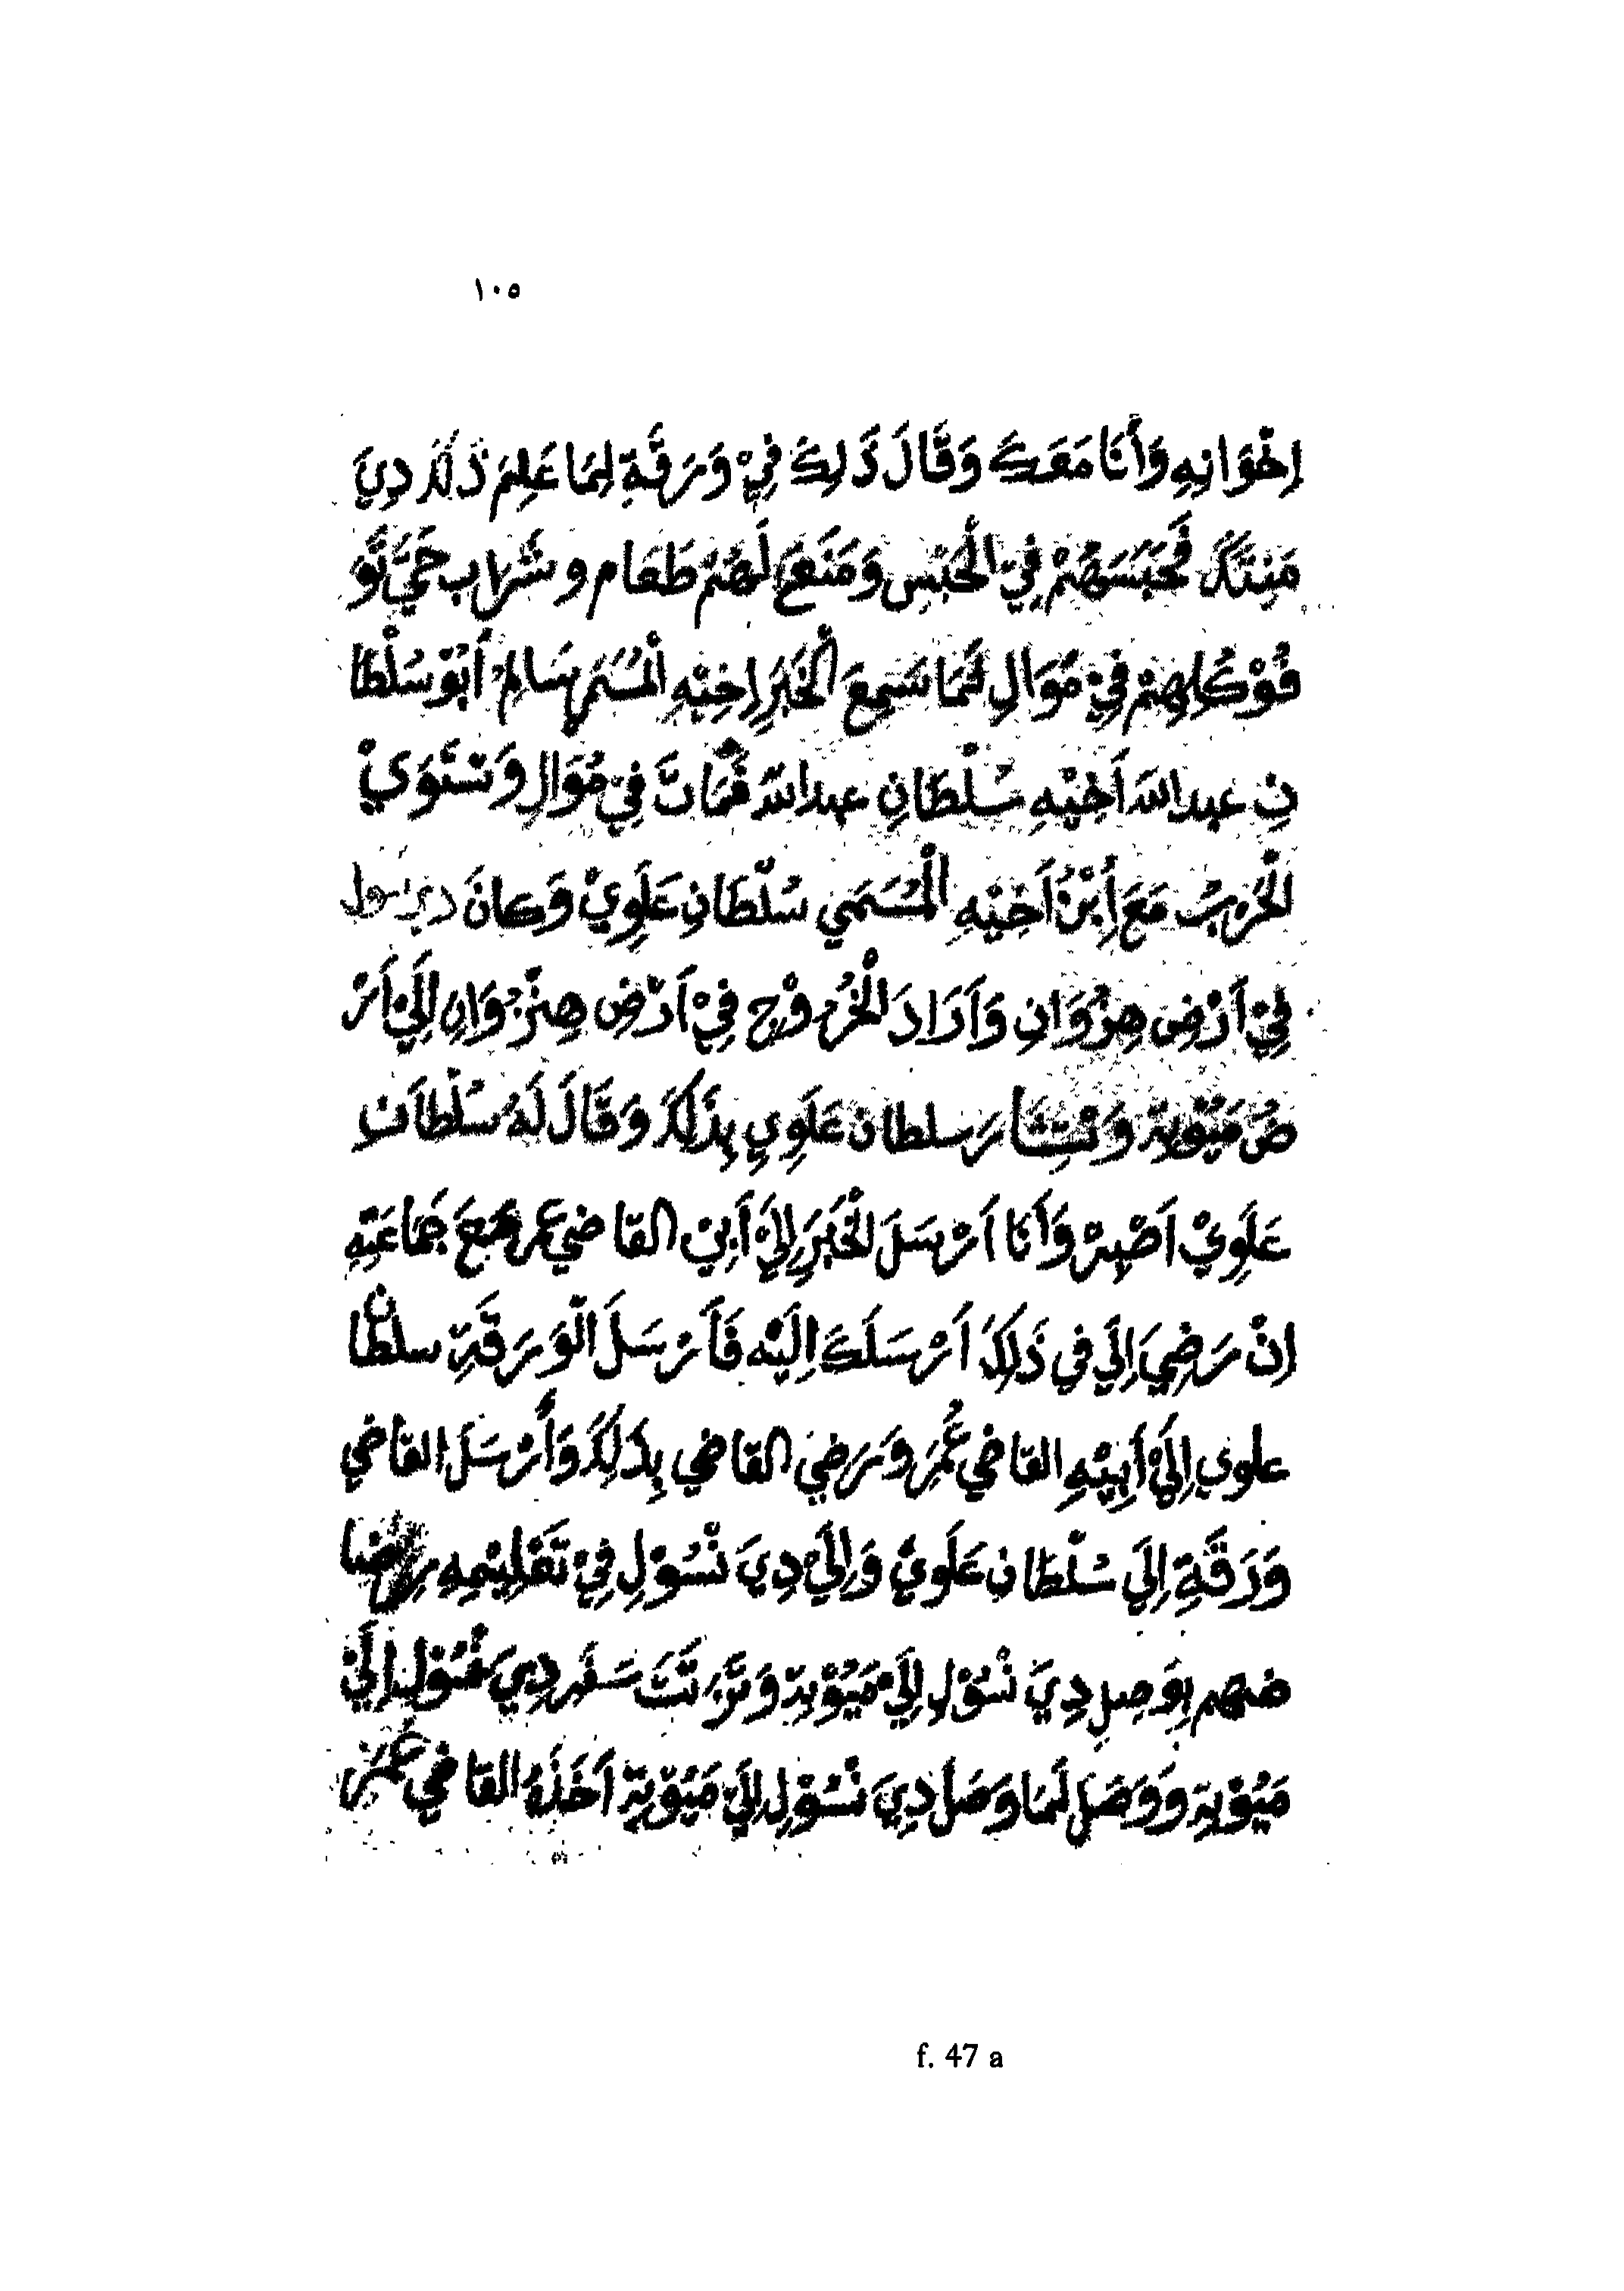 ١٠٥
إِخْوَانِهِ وَأَنَا مَعَكَ وَقَالَ ذَلِكَ فِيْ وَرَقَةِ لِمَا عَلِمَ ذَلِكَ دِيَ
مَنِنَكَ فَحَبَسَهُمْ فِيْ الْحَبْسِ وَمَنَعَ لَهُمْ طَعَام وشَرَاب حَتَّيَ تَو
فُوْ كُلِهِمْ فِيْ مُوَالِ لَمَا سَمِعَ الْخَبَرِ إِخِيْهِ الْمُسَمَ سَالِمْ أَبُوْ سُلْطَا
نِ عبدالله أَخِيْهِ سُلْطَانِ عبدالله فَمَاتَ فِيْ مُوَالِ وَسْتَوَيْ
لْحَرْبُ مَعَ أَبْنُ أَخِيْهِ الْمُسَمَي سُلْطَانِ عَلَوِيْ وَكانَ دي سول
فِيْ أَرْضِ هِزُوَانِ وَأَرَادَ الْخُرُوْجِ فِيْ أَرْضِ هِنْزُوَانِ إِلَيْ أَرْ
ضُ مَيُوْتِة وَسْتِشَارَ سلطان عَلَوِي بِذَلِكَ وَقَالَ لَهُ سُلْطَانِ
عَلَوِيْ اَصْبِرْ وَأَنَا أَرْسَلَ لْخَبَرِ إِلَيْ أَبِيْ القاضي عمر مَعَ جَمَاعَتِهِ
اِنْ رَضِيَ إِلَي في ذَلِكَ اَرْسَلَكَ إِلَيْه فَأَرْسَلَ الْوَرَقَةِ سلطان
علوي إِلَيْ أَبِيْهِ القاضي عُمَرَ وَرَضِيَ القاضي بِذَلِكَ وَأَرْسَلَ القاضي
وَرَقَةِ إِلَيَ سُلْطَانِ عَلَوِيْ وَإِلَيْ دِيَ نْسُوْلِ فِيْ تَقْلِيْمِهِ
ضهم بِوَصِلِ دِيَ نْسُوْلِ إِلَيْ مَيُوْتِة وَتَرَتَّبَ سَفَر دِيَ نْسُوْلِ إِلَيْ
مَيُوْتِة وَوَصَلَ لَمَا وَصَلَ دِيَ نْسُوْلِ إِلَيْ مَيُوْتِة اَخَذَهُ القاضي عُمَرْ
f. 47 a